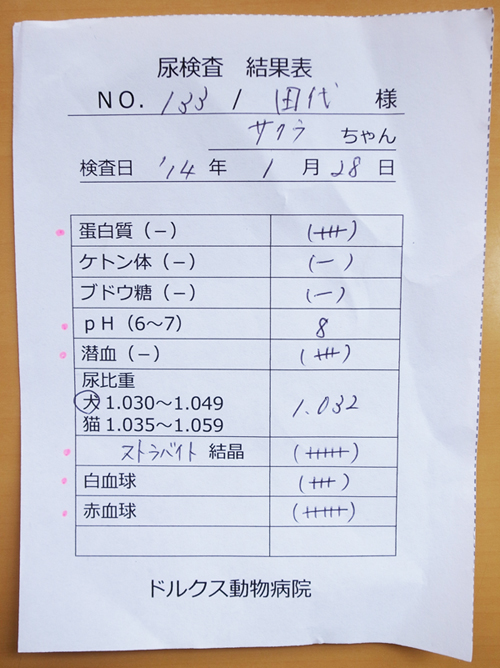 尿検査 結果表
NO. 133 / 田代 様
サクラ ちゃん
検査日 '14 年 1 月 28 日
蛋白質（－） (+++)
ケトン体（－） (－)
ブドウ糖（－） (－)
ｐＨ（6～7） 8
潜血（－） (+++)
尿比重
犬 1.030～1.049 1.032
猫 1.035～1.059
ストラバイト 結晶 (+++++)
白血球 (+++)
赤血球 (+++++)
ドルクス動物病院